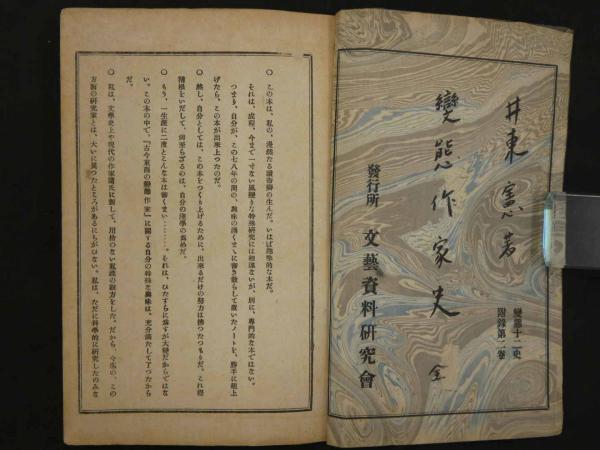 井東憲著
變態作家史 全
變態十二史
附錄第二卷
發行所 文藝資料研究會
○ この本は、私の、漫然たる讀書癖の生んだ、いはば爲樂的な本だ。
それは、成程、今まで一寸ない風變りな特殊研究には相違ないが、別に、專門的な本ではない。
つまり、自分が、この七八年の間の、興味の湧くまゝに書き散らして置いたノートを、勝手に組上
げたら、この本が出來上つたのだ。
○ 然し、自分としては、この本をつくり上げるために、出來るだけの努力は拂つたつもりだ。これ程
精根をいだして、尚至らざるのは、自分の淺學の爲めだ。
○ もう、一生涯に二度とこんな本は書くまい………。それは、ひたすらに濟すが大變だからではな
い。この本の中で、『古今東西の變態作家』に關する自分の特殊な興味は、充分滿たして了つたから
だ。
○ 私は、文學史上や現代の作家諸氏に對して、用捨のない私流の觀方をした。だから、今迄の、この
方面の研究家とは、大いに異つたところがあるにちがひない。私は、ただに科學的に研究したのみな